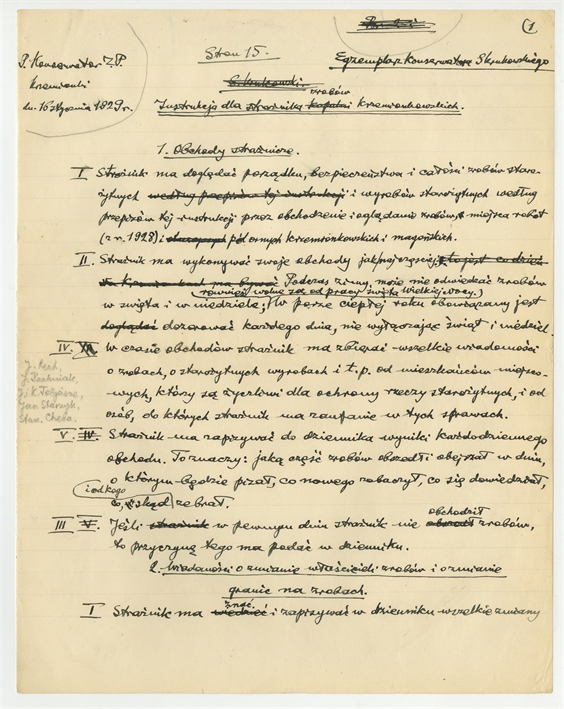 1
P. Konserwator Z.P.
Krzemionki
dn. 16 stycznia 1929 r.
Stron 15.
Egzemplarz Konserwatora Skrukowskiego
S. Krukowski.
zrobów
Instrukcja dla strażnika kopalni Krzemionkowskich.
1. Obchody strażnicze.
I Strażnik ma doglądać porządku, bezpieczeństwa i całości zrobów staro-
żytnych według przepisów tej instrukcji i wyrobów starożytnych według
przepisów tej instrukcji przez obchodzenie i oglądanie zrobów, miejsca robót
(z r. 1928) i pól ornych krzemionkowskich i magońskich.
II. Strażnik ma wykonywać swoje obchody jaknajczęściej, to jest co dzień
Podczas zimy, może nie odwiedzać zrobów
również wolne są od pracy święta Wielkiejnocy.)
w święta i w niedziele; (W porze ciepłej roku obowiązany jest
doglądać dozorować każdego dnia, nie wyłączając świąt i niedziel.
IV. W czasie obchodów strażnik ma zbierać wszelkie wiadomości
o zrobach, o starożytnych wyrobach i t.p. od mieszkańców miejsco-
wych, którzy są życzliwi dla ochrony rzeczy starożytnych, i od
osób, do których strażnik ma zaufanie w tych sprawach.
Jan
Stan.
V. IV. Strażnik ma zapisywać do dziennika wyniki każdodziennego
obchodu. To znaczy: jaką część zrobów obszedł i obejrzał w dniu,
o którym będzie pisał, co nowego zobaczył, co się dowiedział,
i od kogo
co, skąd zebrał.
obchodził
III V. Jeśli strażnik w pewnym dniu strażnik nie obszedł zrobów,
to przyczynę tego ma podać w dzienniku.
2. Wiadomości o zmianie właścicieli zrobów i o zmianie
granic na zrobach.
znać
I Strażnik ma wiedzieć i zapisywać w dzienniku wszelkie zmiany